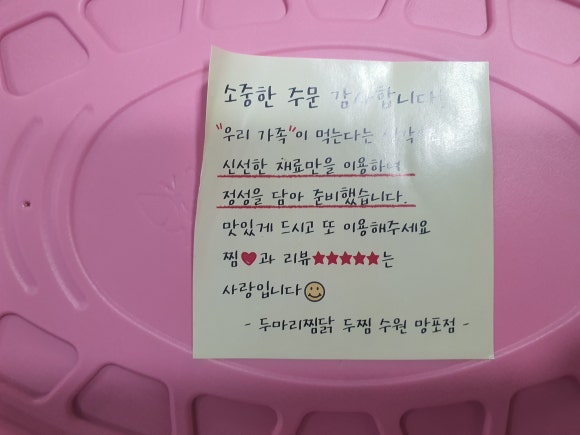 소중한 주문 감사합니다!
"우리 가족"이 먹는다는 생각으로
신선한 재료만을 이용하여
정성을 담아 준비했습니다.
맛있게 드시고 또 이용해주세요
찜♥과 리뷰★★★★★는
사랑입니다☺
- 두마리찜닭 두찜 수원 망포점 -